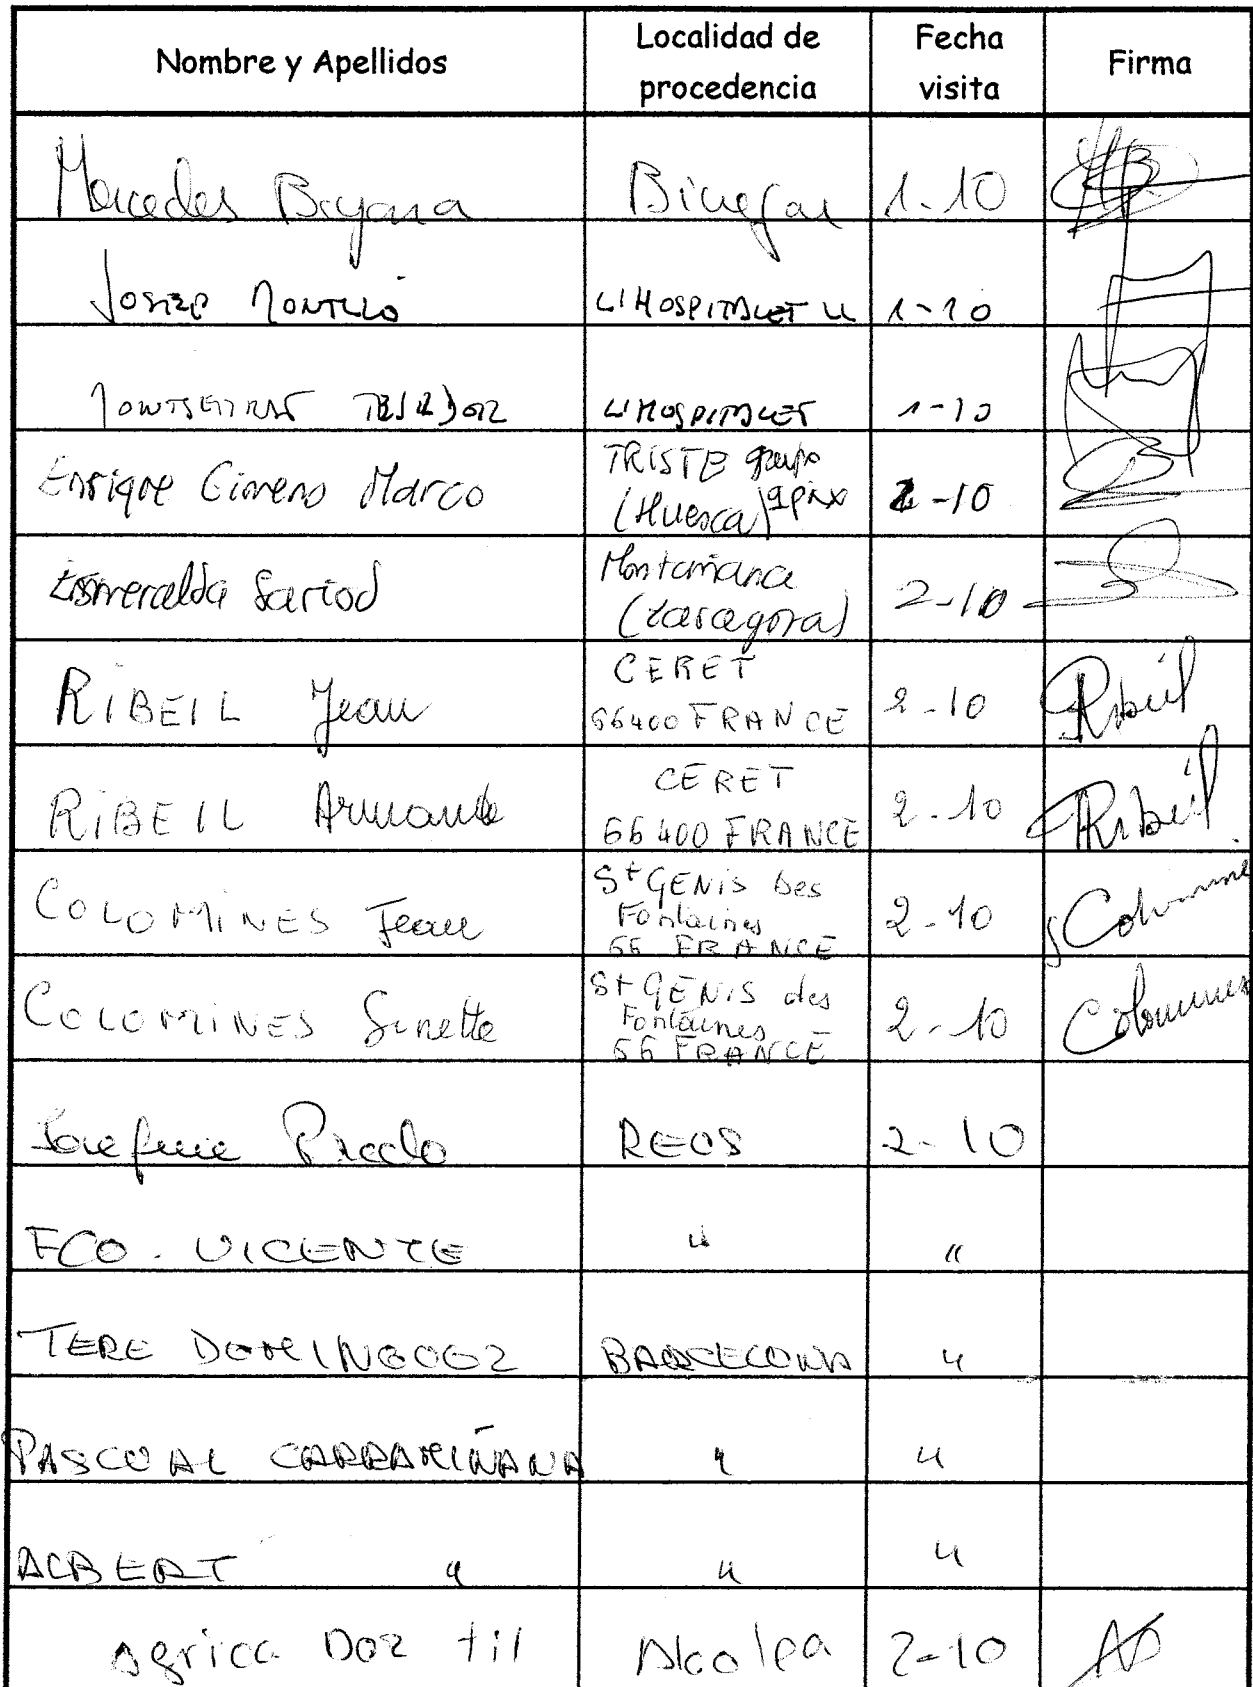 Nombre y Apellidos Localidad de procedencia Fecha visita Firma
Mercedes Bayona Binefar 1-10
Josep Montlló L'Hospitalet LL 1-10
Montserrat L'Hospitalet 1-10
Enrique Gimeno Marco TRISTE grupo (Huesca) 2-10
Esmeralda Sartod Montañana (Zaragoza) 2-10
RIBEIL Jean CERET 66400 FRANCE 2-10 Ribeil
RIBEIL Armande CERET 66400 FRANCE 2-10 Ribeil
COLOMINES Jean St GENIS Des Fontaines 66 FRANCE 2-10 Colomines
COLOMINES Ginette St GENIS des Fontaines 66 FRANCE 2-10 Colomines
Josefina Prado REUS 2-10
FCO. VICENTE " "
TERE DOMINGUEZ BARCELONA "
PASCUAL CARRAMIÑANA " "
ALBERT " " "
Doz Gil Alcolea 2-10